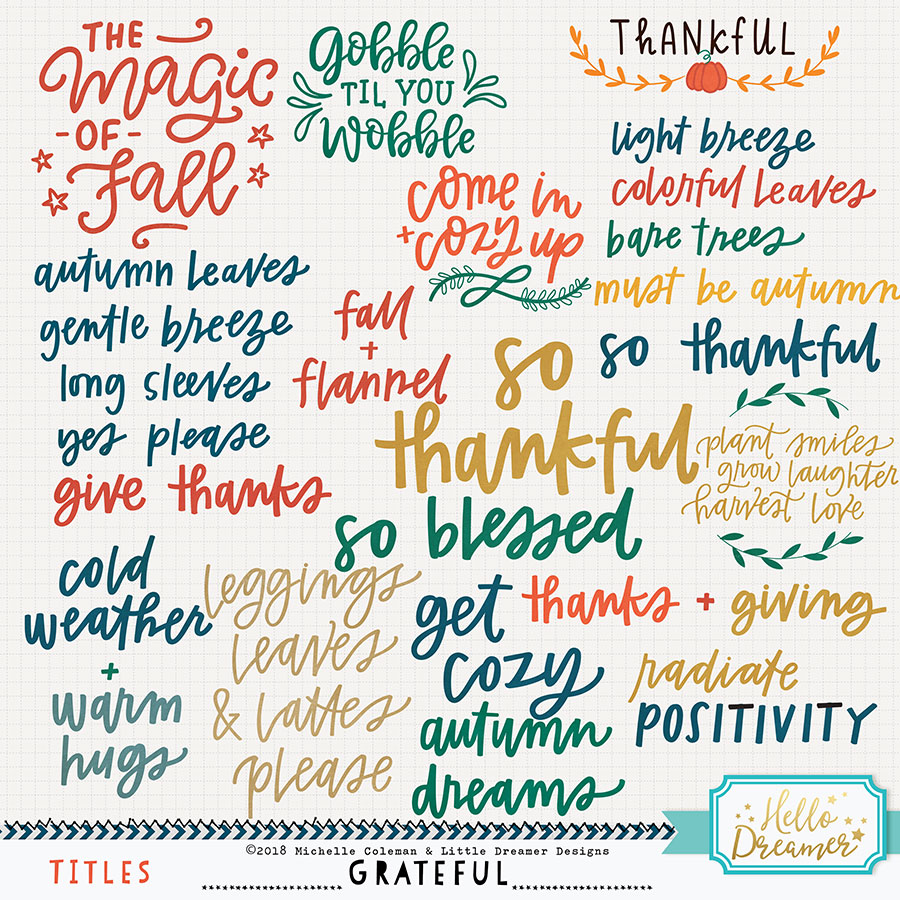 THE
magic
-OF-
Fall
Gobble
TIL YOU
Wobble
THANKFUL
light breeze
colorful leaves
bare trees
must be autumn
come in
+cozy up
autumn leaves
gentle breeze
long sleeves
yes please
fall
+
flannel
so thankful
so
thankful
so blessed
plant smiles
grow laughter
harvest love
give thanks
cold
weather
+
warm
hugs
leggings
leaves
& lattes
please
get
cozy
thanks + giving
autumn
dreams
radiate
POSITIVITY
Hello
Dreamer
©2018 Michelle Coleman & Little Dreamer Designs
TITLES
GRATEFUL